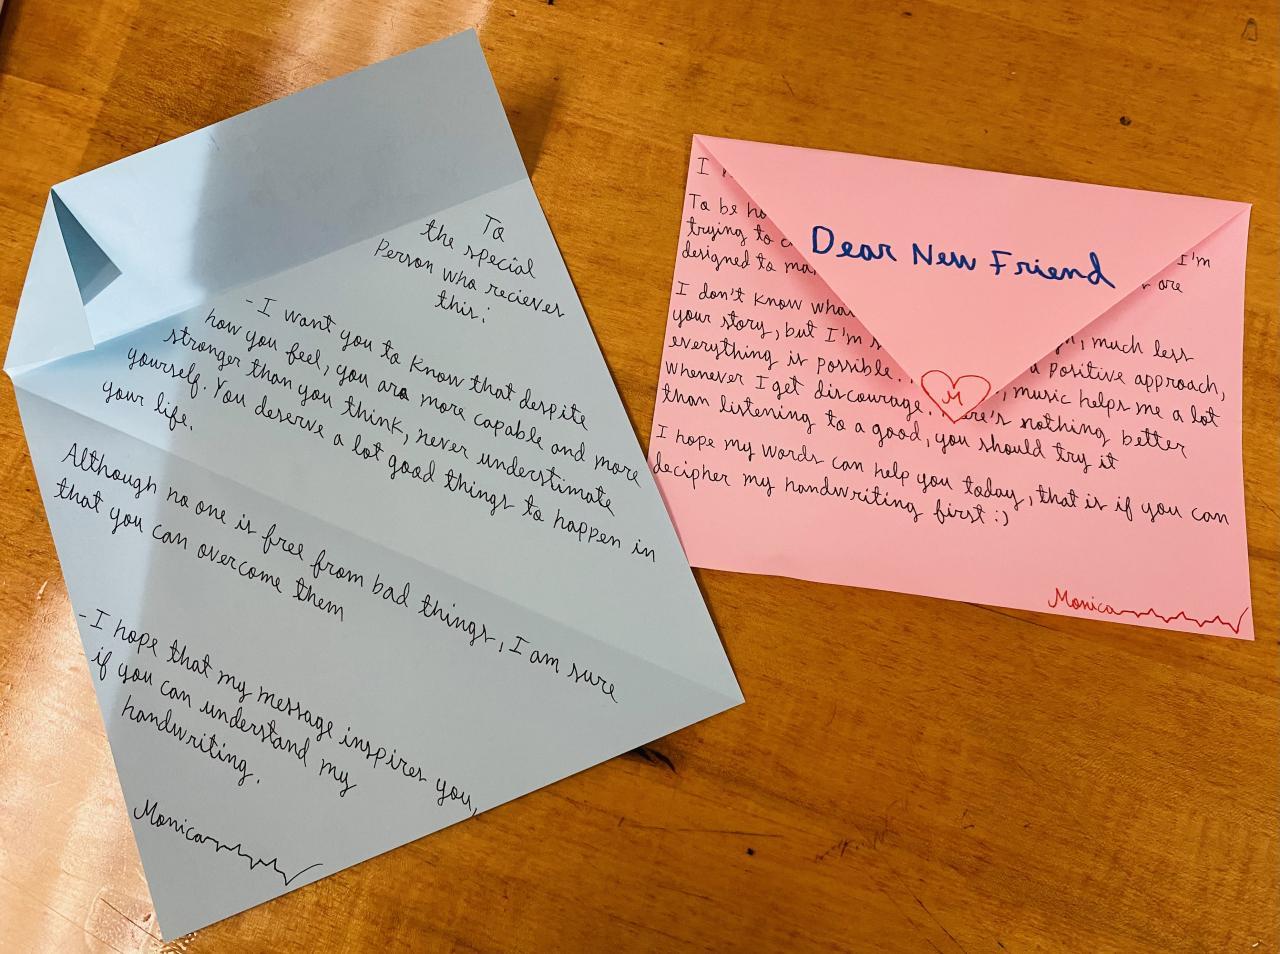 To
the special
Person who reciever
this:
- I want you to know that despite
how you feel, you are more capable and more
stronger than you think, never understimate
yourself. You deserve a lot good things to happen in
your life.
Although no one is free from bad things, I am sure
that you can overcome them
- I hope that my message inspires you,
if you can understand my
handwriting.
Monica
Dear New Friend
M
I
To be
trying to I'm
designed to are
I don't know much less
your story, but I'm
everything is possible. a positive approach,
whenever I get discourage. music helps me a lot
than listening to a good, you should try it nothing better
I hope my words can help you today, that is if you can
decipher my handwriting first :)
Monica